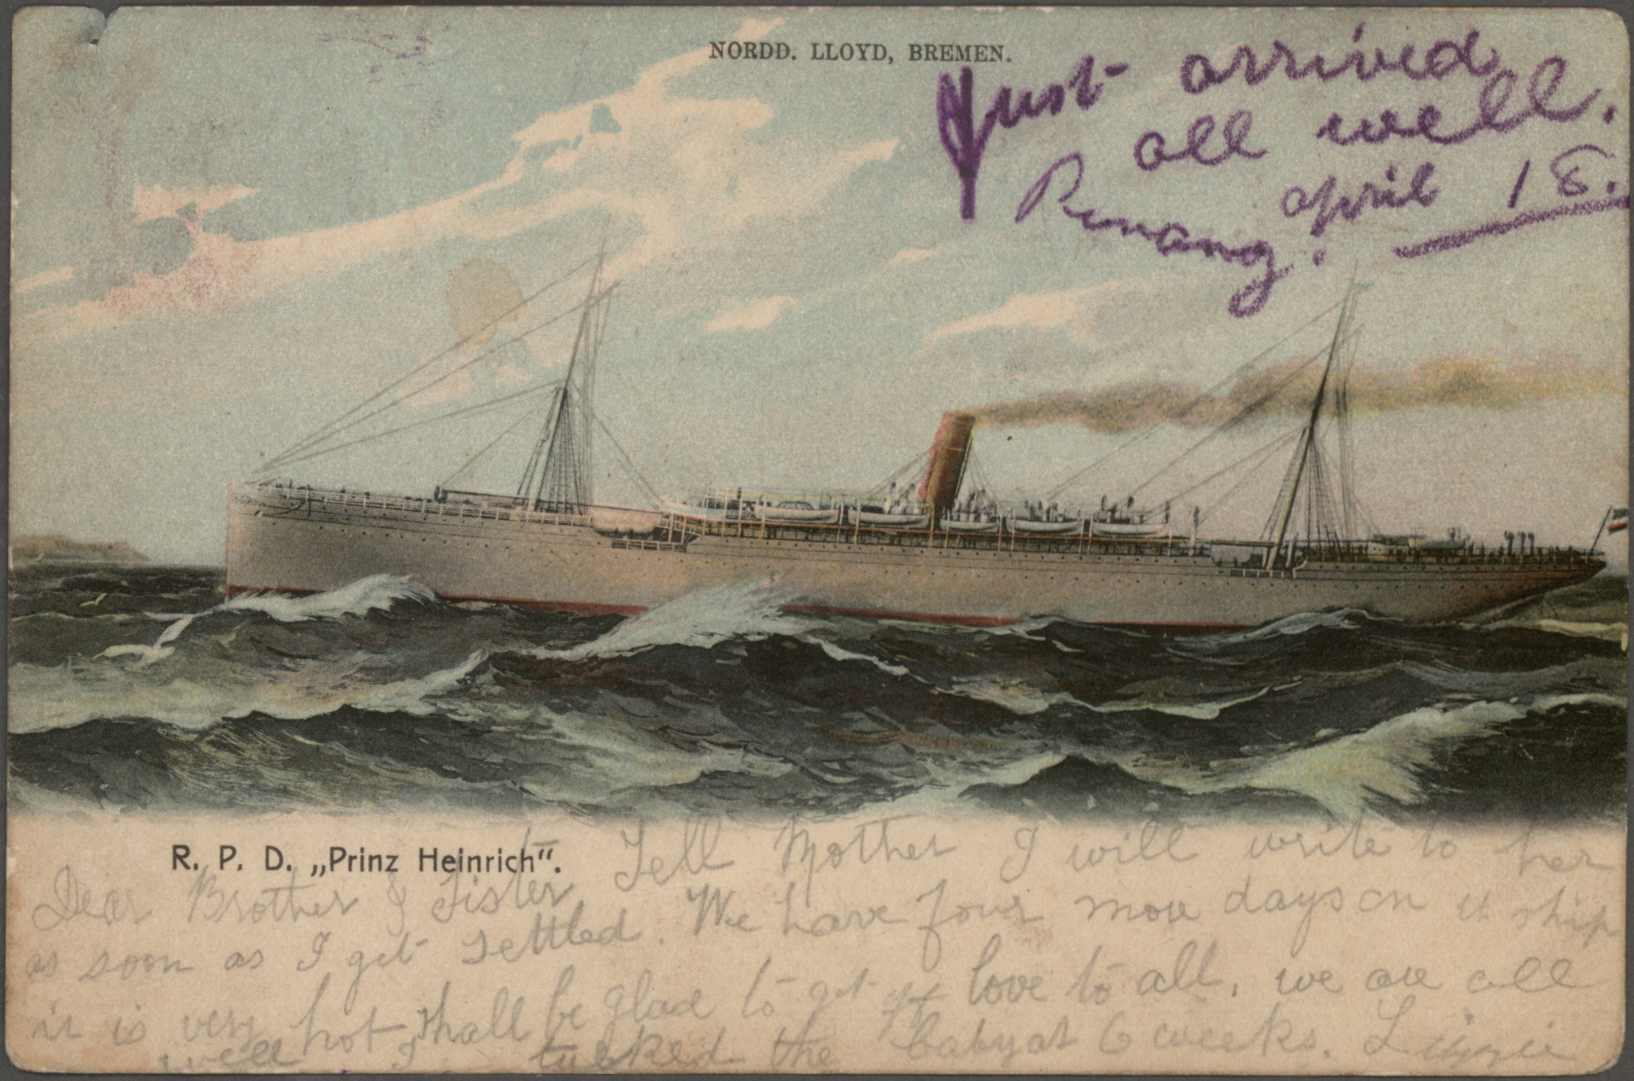 NORDD. LLOYD, BREMEN.
Just arrived
all well.
april 18.
Penang.
R. P. D. „Prinz Heinrich“.
Dear Brother & Sister Tell Mother I will write to her
as soon as I get settled. We have four more days on ship
it is very hot shall be glad to get off love to all, we are all
well I tucked the baby at 6 weeks. Lizzie